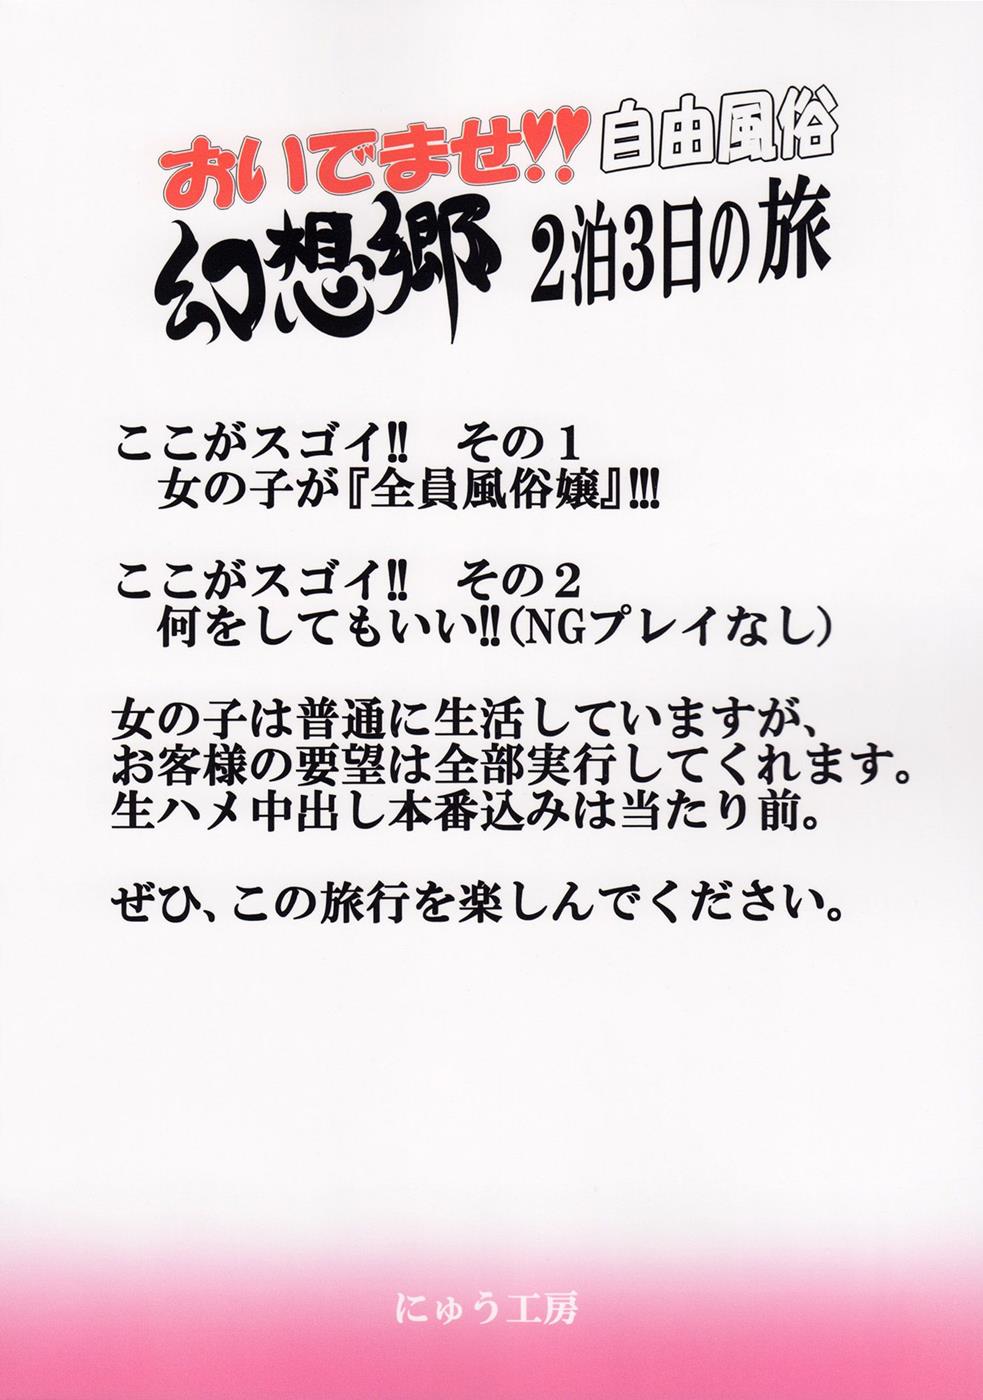 おいでませ!!自由風俗
幻想郷 2泊3日の旅
ここがスゴイ!! その1
女の子が『全員風俗嬢』!!!
ここがスゴイ!! その2
何をしてもいい!!(NGプレイなし)
女の子は普通に生活していますが、
お客様の要望は全部実行してくれます。
生ハメ中出し本番込みは当たり前。
ぜひ、この旅行を楽しんでください。
にゅう工房